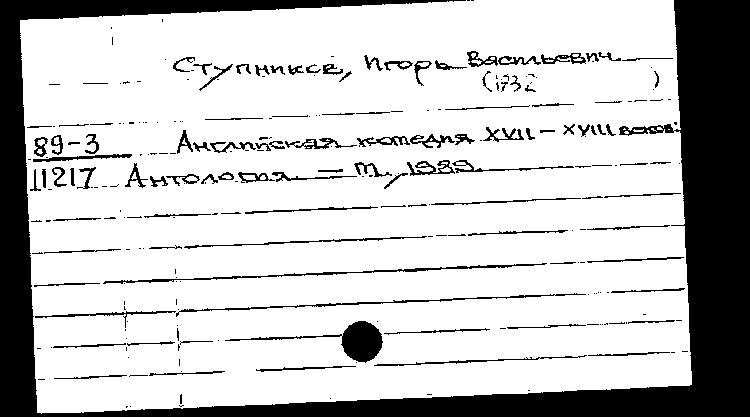 Ступников, Игорь Васильевич
(1932 )
89-3 Английская комедия XVII – XVIII веков:
11217 Антология. – М., 1989.